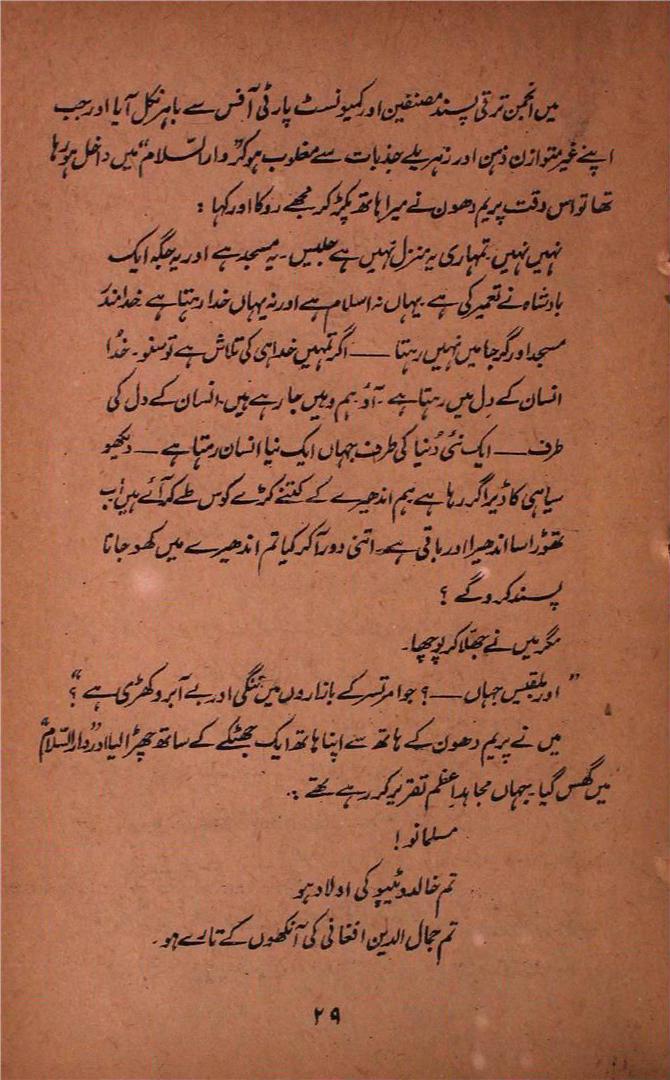 میں انجمن ترقی پسند مصنفین اور کمیونسٹ پارٹی آفس سے باہر نکل آیا اور جب
اپنے غیر متوازن ذہن اور زہریلے جذبات سے مغلوب ہو کر "دار السّلام" میں داخل ہو رہا
تھا تو اس وقت پریم دھون نے میرا ہاتھ پکڑ کر مجھے روکا اور کہا :
نہیں نہیں۔ تمہاری یہ منزل نہیں ہے جلیس۔ یہ مسجد ہے اور یہ جگہ ایک
بادشاہ نے تعمیر کی ہے۔ یہاں نہ اسلام ہے اور نہ یہاں خدا رہتا ہے۔ خدا مندر
مسجد اور گرجا میں نہیں رہتا — اگر تمہیں خدا ہی کی تلاش ہے تو سنو۔ خُدا
انسان کے دِل میں رہتا ہے۔ آؤ ہم وہیں جا رہے ہیں۔ انسان کے دل کی
طرف — ایک نئی دُنیا کی طرف جہاں ایک نیا انسان رہتا ہے — دیکھو
سیاہی کا ڈیرا گر رہا ہے ہم اندھیرے کے کتنے کڑے کوس طے کر آئے ہیں اب
تھوڑا سا اندھیرا اور باقی ہے۔ اتنی دور آ کر کیا تم اندھیرے میں کھو جانا
پسند کرو گے ؟
مگر میں نے جھلّا کر پوچھا۔
"اور بلقیس جہاں — ؟ جو امرتسر کے بازاروں میں ننگی اور بے آبرو کھڑی ہے ؟"
میں نے پریم دھون کے ہاتھ سے اپنا ہاتھ ایک جھٹکے کے ساتھ چھڑا لیا اور "دار السّلام"
میں گھس گیا۔ جہاں مجاہدِ اعظم تقریر کر رہے تھے :۔
مسلمانو !
تم خالد و ٹیپو کی اولاد ہو
تم جمال الدین افغانی کی آنکھوں کے تارے ہو۔
۲۹